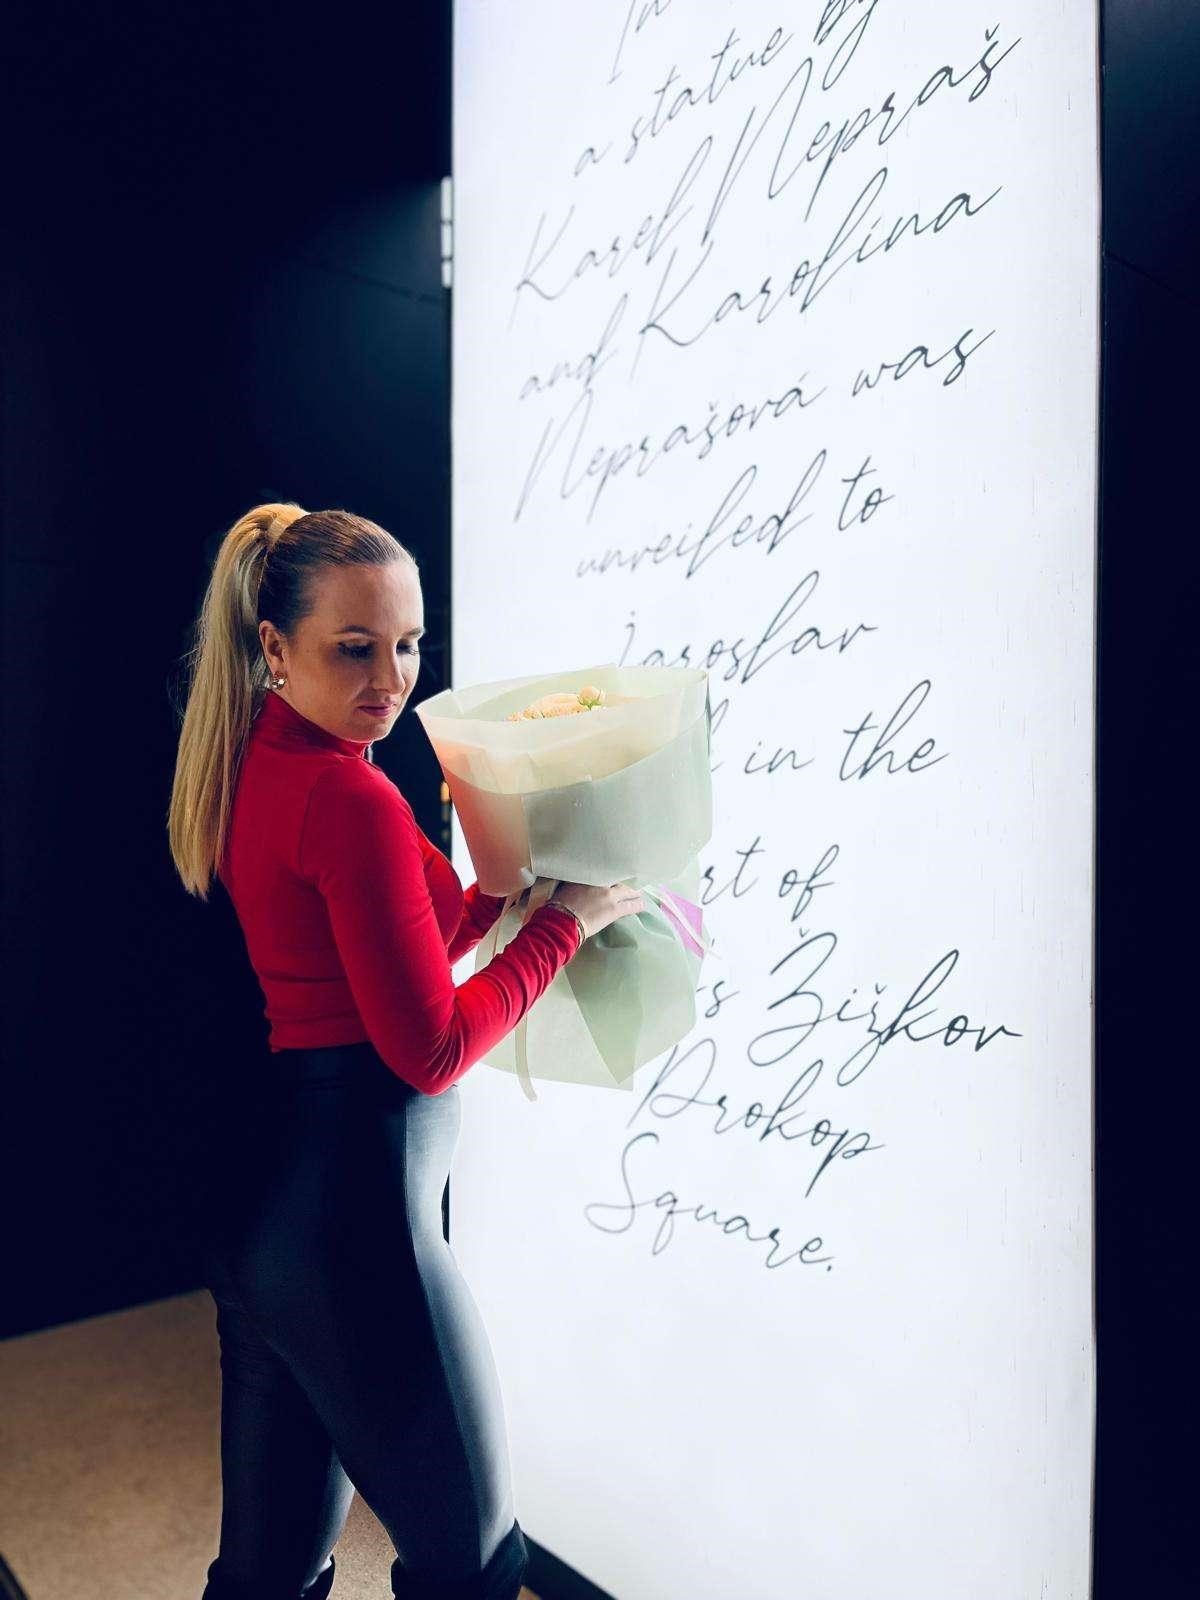 In
a statue by
Karel Nepraš
and Karolína
Neprašová was
unveiled to
Jaroslav
in the
of
Žižkov
Prokop
Square.